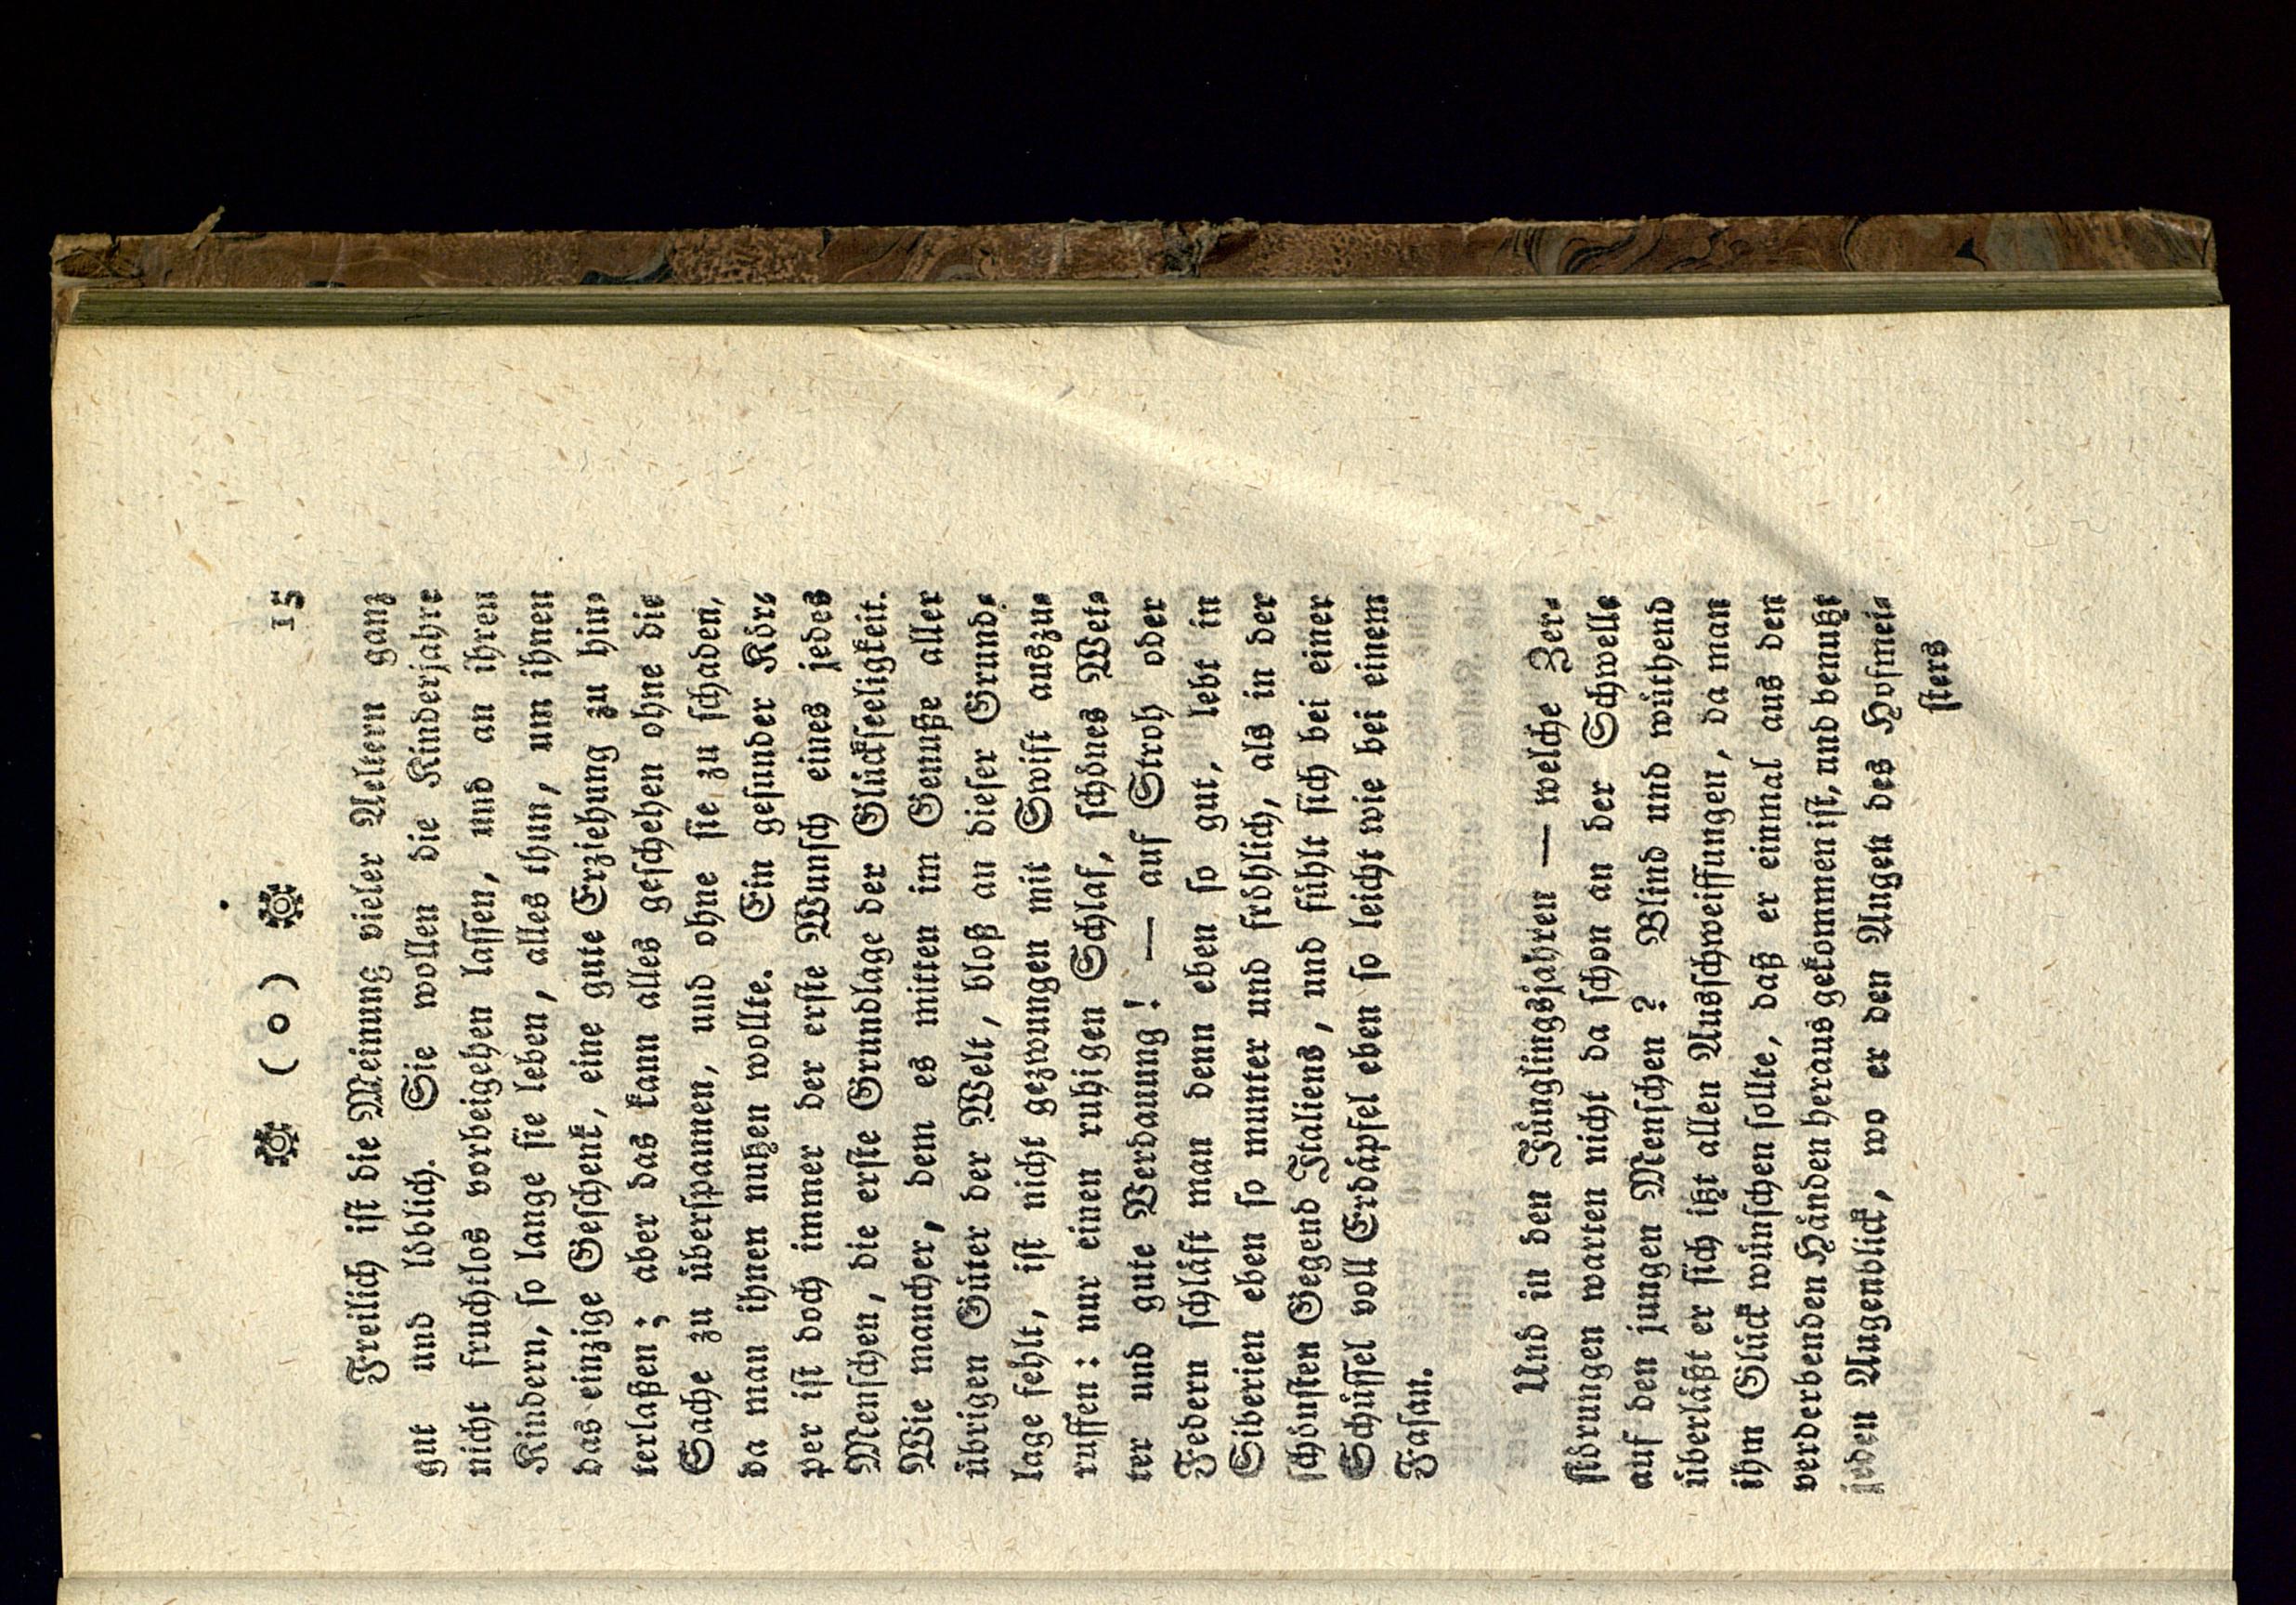 ❁ ( o ) ❁ 15
Freilich ist die Meinung vieler Aeltern ganz
gut und löblich. Sie wollen die Kinderjahre
nicht fruchtlos vorbeigehen lassen, und an ihren
Kindern, so lange sie leben, alles thun, um ihnen
das einzige Geschenk, eine gute Erziehung zu hin-
terlaßen; aber das kann alles geschehen ohne die
Sache zu überspannen, und ohne sie zu schaden,
da man ihnen nutzen wollte. Ein gesunder Kör-
per ist doch immer der erste Wunsch eines jedes
Menschen, die erste Grundlage der Glückseeligkeit.
Wie mancher, dem es mitten im Genuße aller
übrigen Güter der Welt, bloß an dieser Grund-
lage fehlt, ist nicht gezwungen mit Swift auszu-
ruffen: nur einen ruhigen Schlaf, schönes Wet-
ter und gute Verdauung! — auf Stroh oder
Federn schläft man denn eben so gut, lebt in
Siberien eben so munter und fröhlich, als in der
schönsten Gegend Italiens, und fühlt sich bei einer
Schüssel voll Erdäpfel eben so leicht wie bei einem
Fasan.
Und in den Jünglingsjahren — welche Zer-
störungen warten nicht da schon an der Schwelle
auf den jungen Menschen? Blind und wüthend
überläßt er sich itzt allen Ausschweiffungen, da man
ihm Glück wünschen sollte, daß er einmal aus den
verderbenden Händen heraus gekommen ist, und benutzt
jeden Augenblick, wo er den Augen des Hofmei-
sters